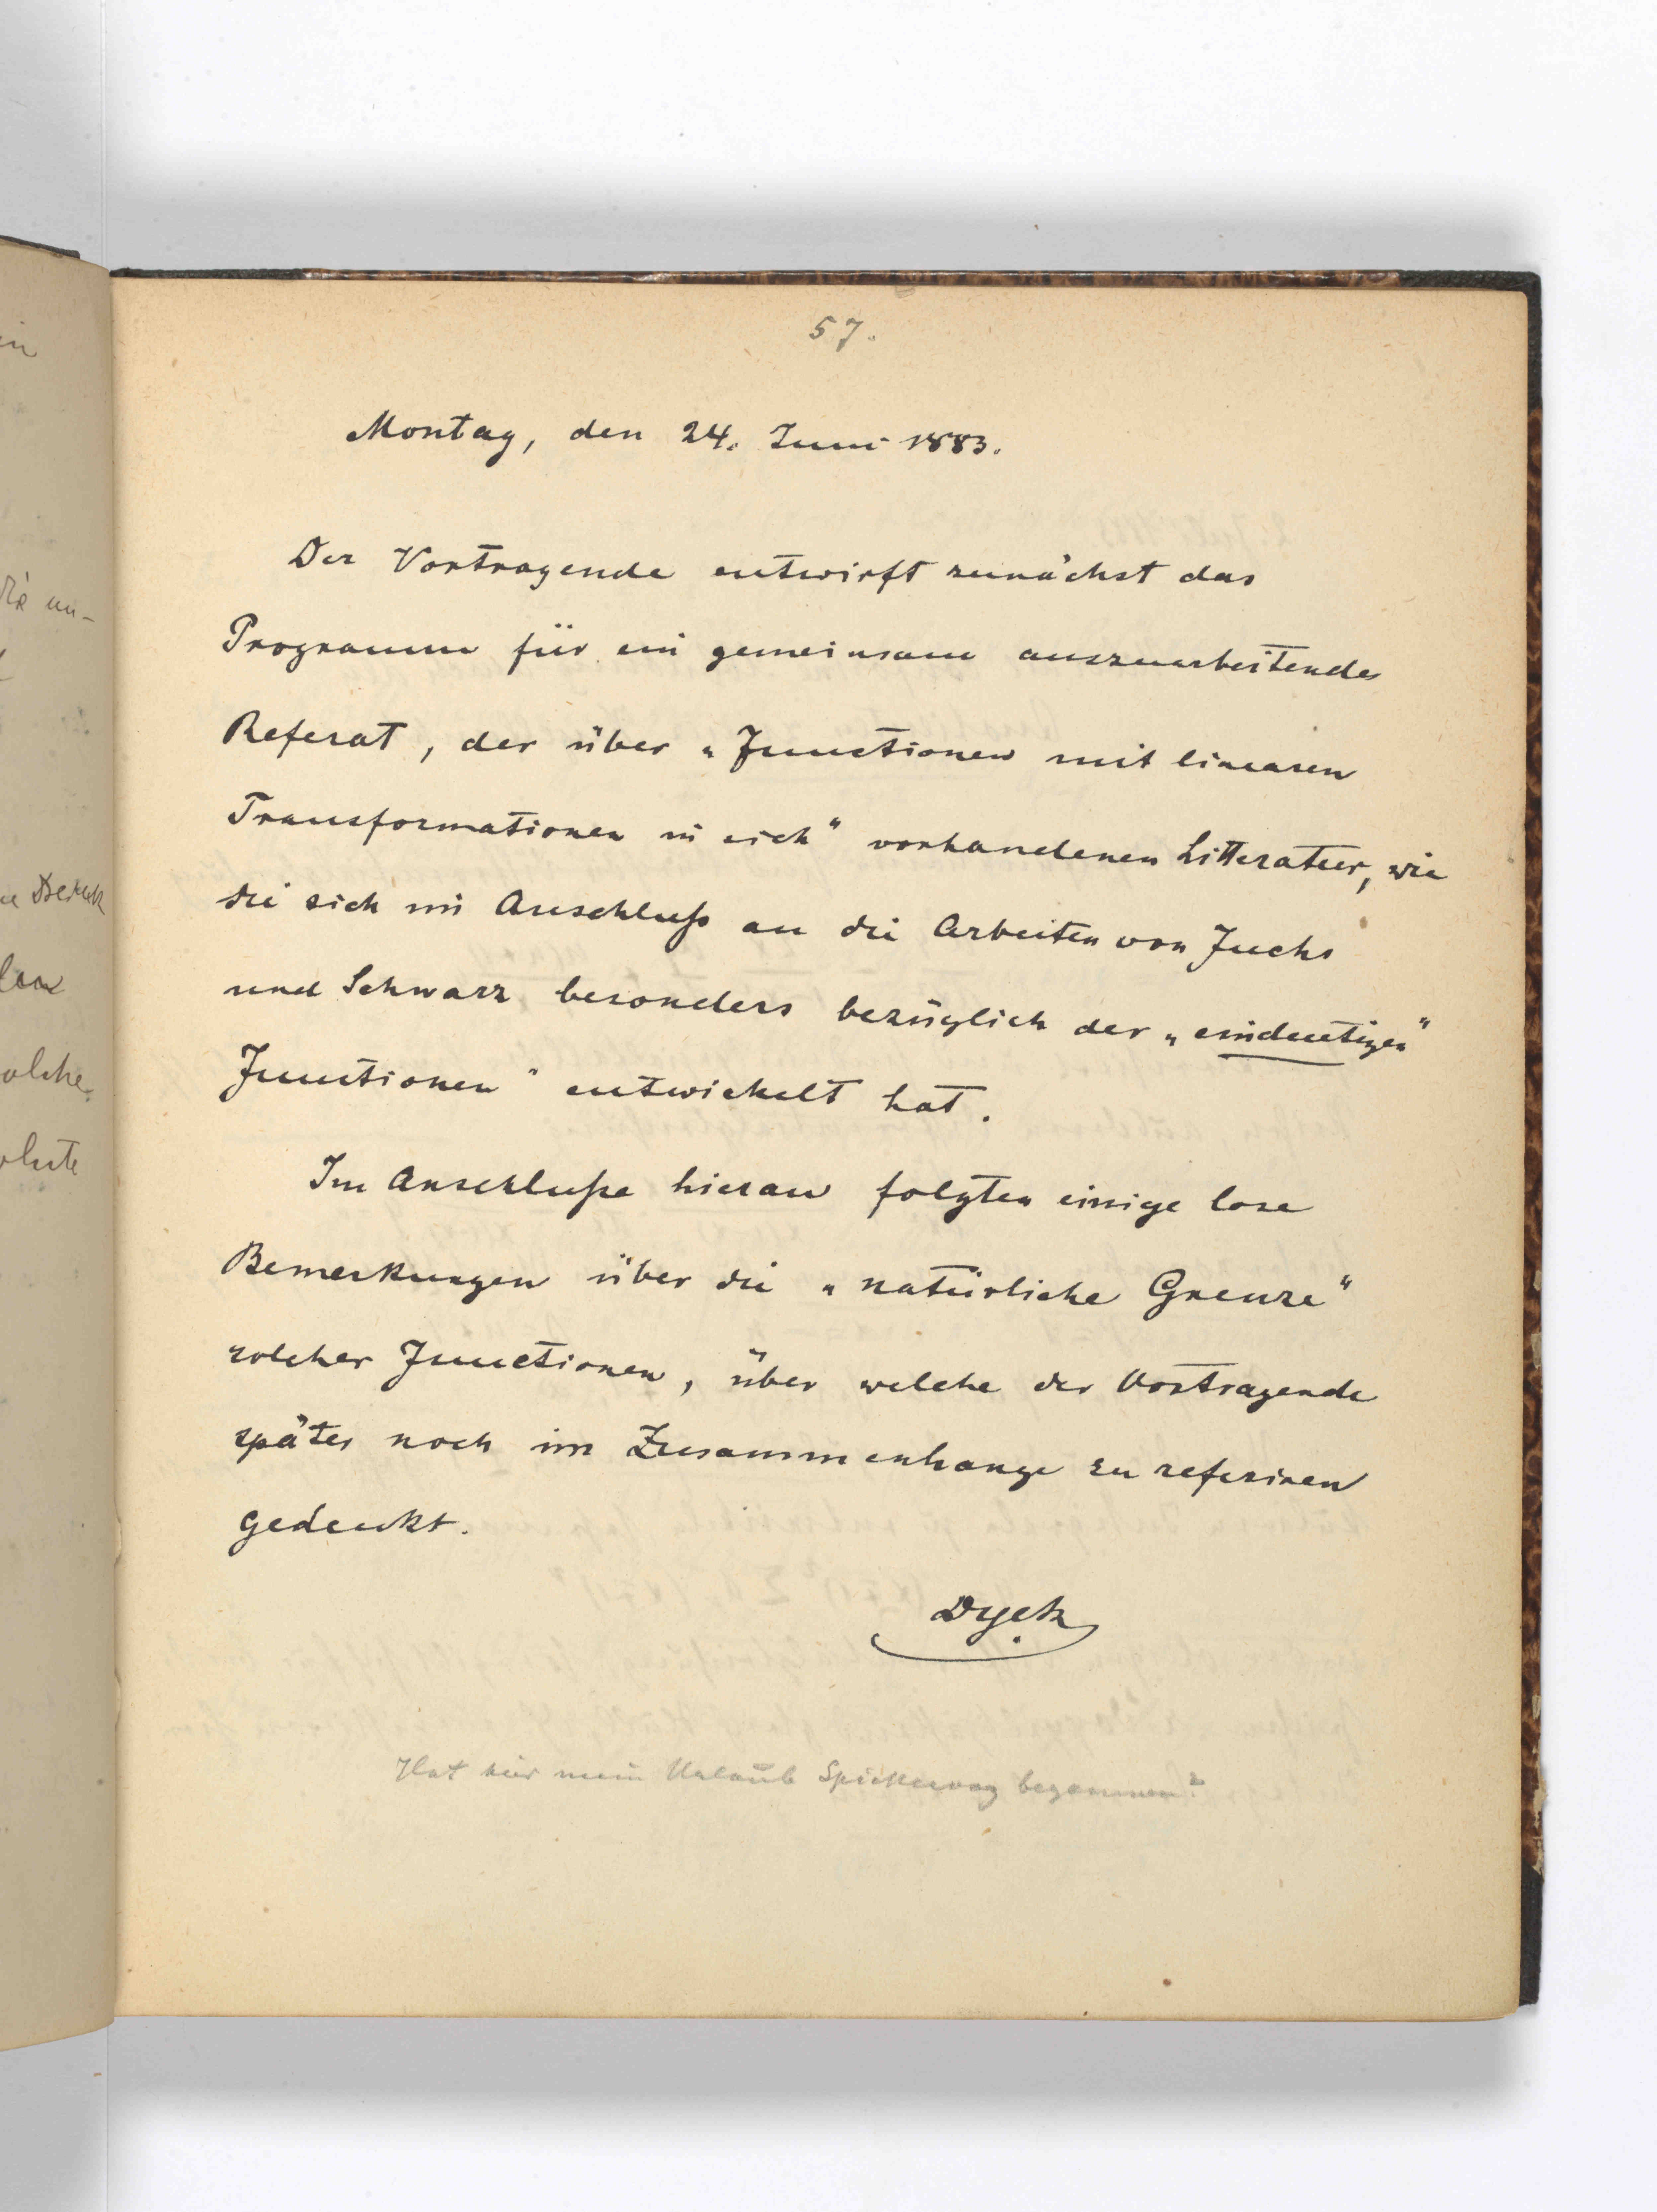 57.
Montag, den 24. Juni 1883.
Der Vortragende entwirft zunächst das
Programm für ein gemeinsam auszuarbeitendes
Referat, der über „Functionen mit linearen
Transformationen in sich" vorhandenen Litteratur, wie
die sich im Anschluß an die Arbeiten von Fuchs
und Schwarz besonders bezüglich der „eindeutigen"
Functionen" entwickelt hat.
Im Anschluße hieran folgten einige lose
Bemerkungen über die „natürliche Grenze"
solcher Functionen, über welche der Vortragende
später noch im Zusammenhange zu referiren
gedenkt.
Dyck
Hat hier mein Urlaub Spiekeroog begonnen?
in
die un-
olche